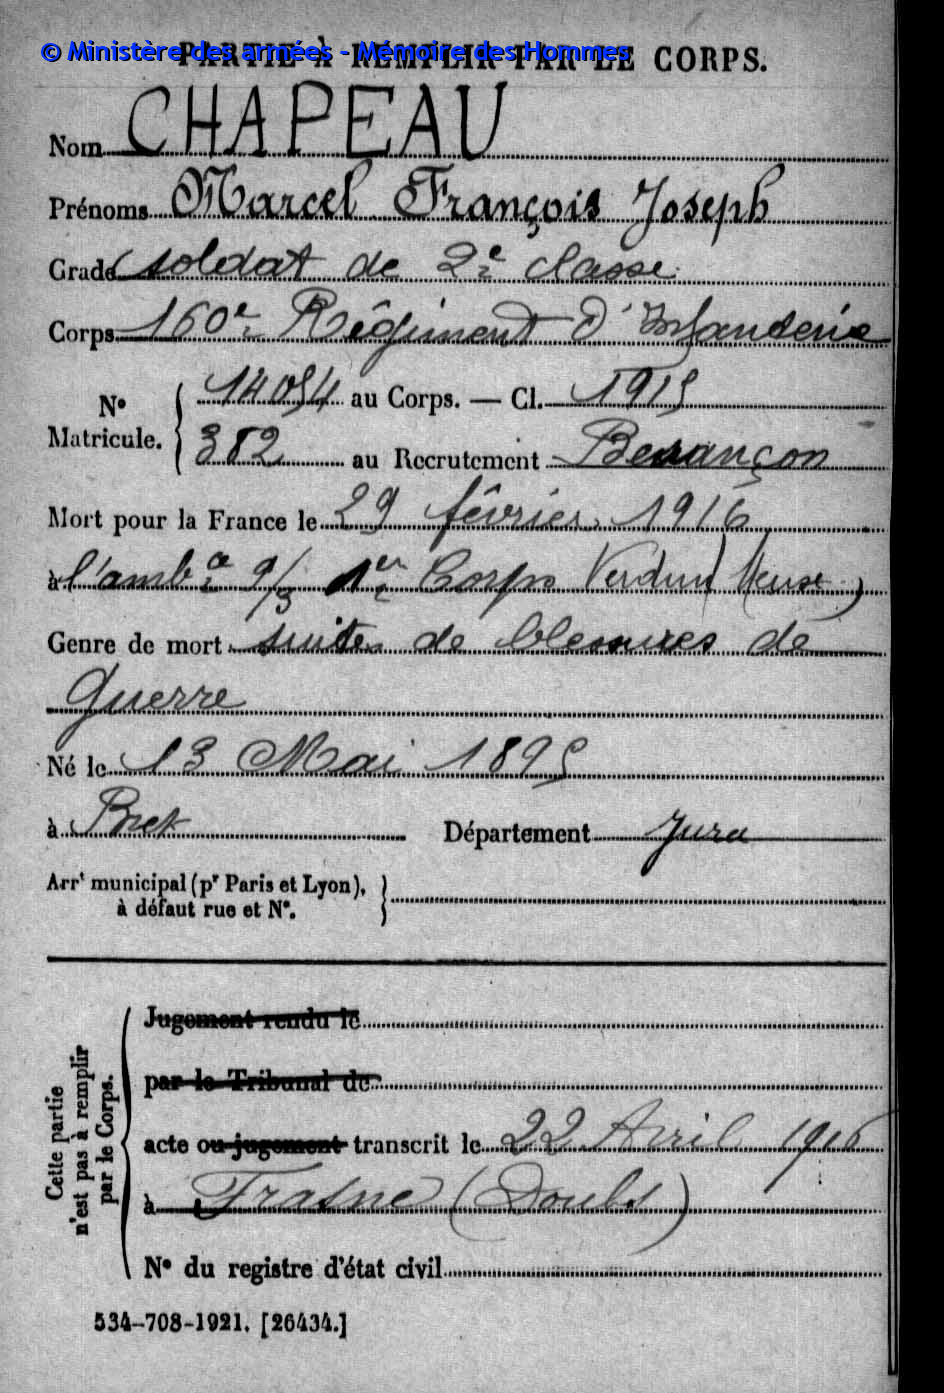 © Ministère des armées - Mémoire des Hommes
PARTIE À REMPLIR PAR LE CORPS.
Nom CHAPEAU
Prénoms Marcel François Joseph
Grade soldat de 2e classe
Corps 160e Régiment d'Infanterie
N°
Matricule.
14054 au Corps. — Cl. 1915
382 au Recrutement Besançon
Mort pour la France le 29 février 1916
à l'ambce 9/3 1er Corps Verdun (Meuse)
Genre de mort suites de blessures de
Guerre
Né le 13 Mai 1895
à Département Jura
Arrt municipal (pr Paris et Lyon),
à défaut rue et N°.
Cette partie
n'est pas à remplir
par le Corps.
Jugement rendu le
par le Tribunal de
acte ou jugement transcrit le 22 Avril 1916
à Frasne (Doubs)
N° du registre d'état civil
534-708-1921. [26434.]